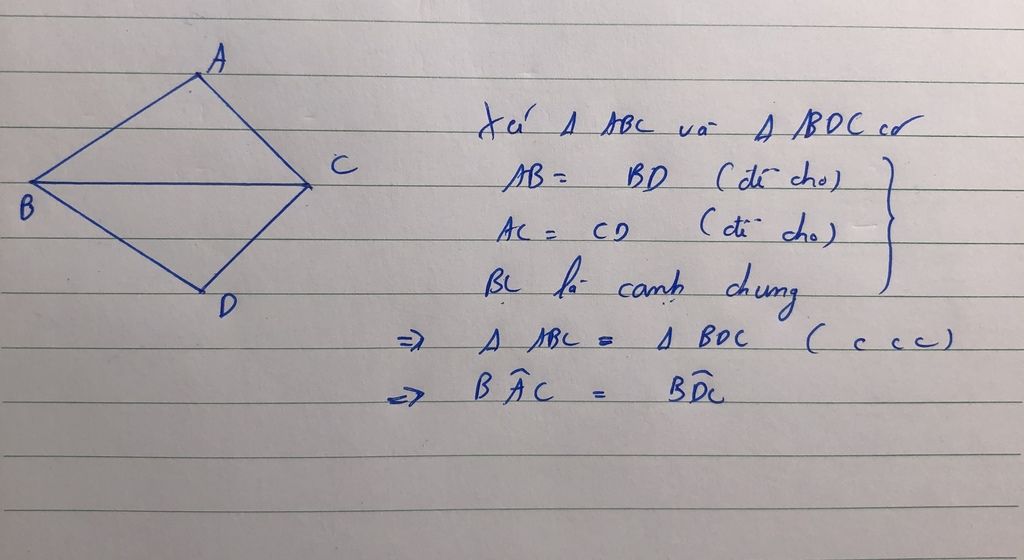 A
B
C
D
Xét Δ ABC và Δ BDC có
AB = BD (đề cho)
AC = CD (đề cho)
BC là cạnh chung
=> Δ ABC = Δ BDC ( c c c )
=> BÂC = BD̂C